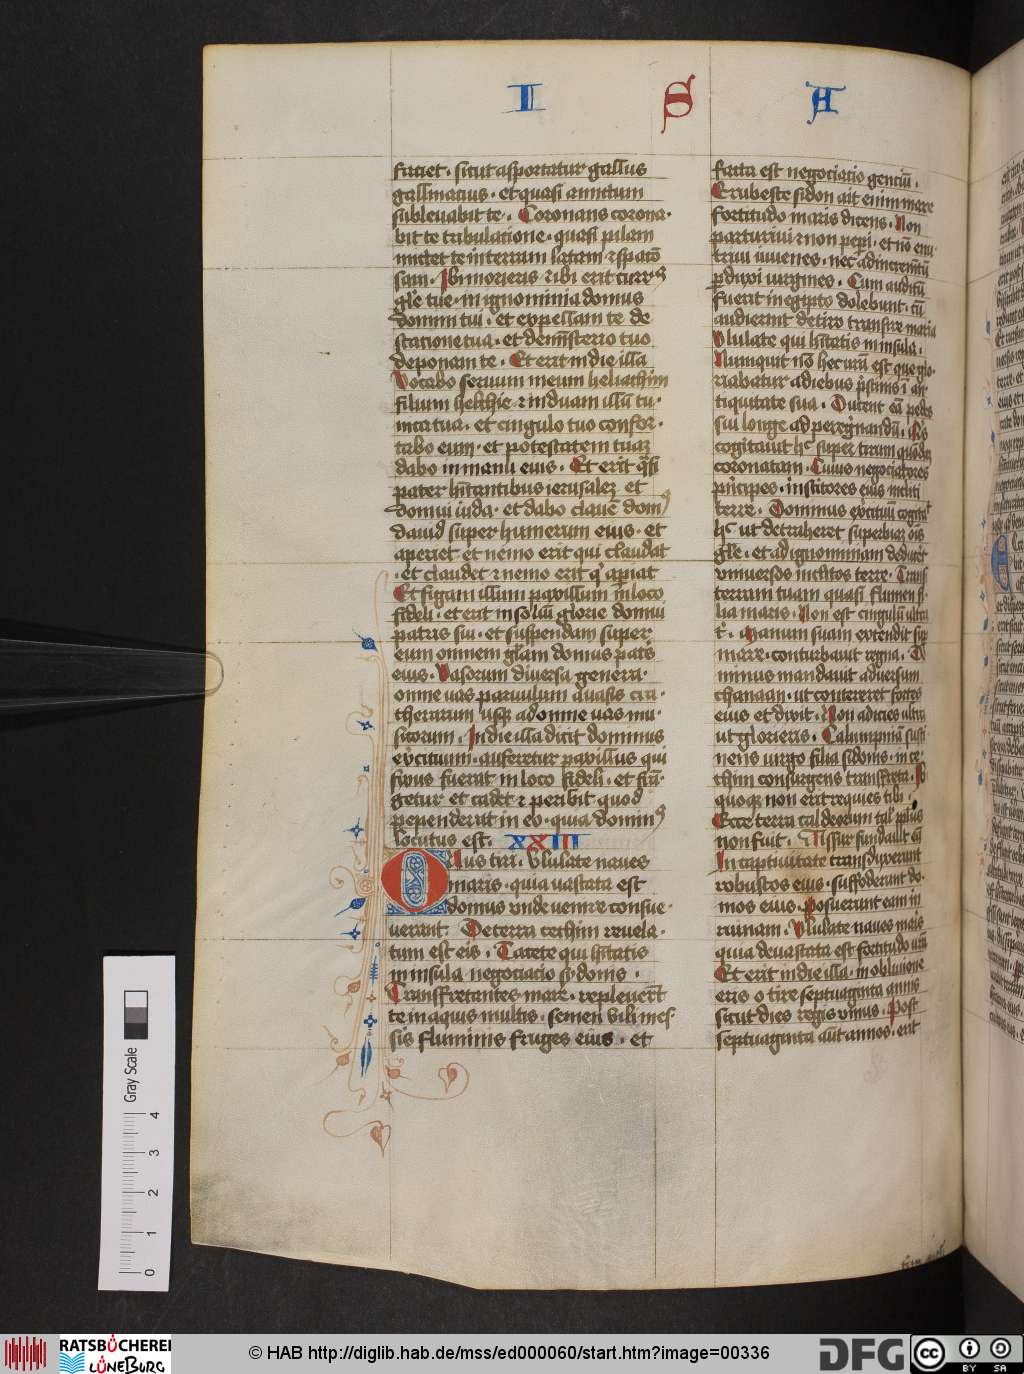 I S A
faciet . sicut asportatur gallus
gallinatius . et quasi amictum
subleuabit te . Coronans corona-
bit te tribulatione . quasi pilam
mittet te in terram latam . ⁊ spatio
sam . Ibi morieris . ⁊ ibi erit currꝰ
gl̄e tue . in ignominia domus
domini tui . et expellam te de
statione tua . et de ministerio tuo
deponam te . Et erit in die illa
Vocabo seruum meum heliachim
filium helchie . ⁊ induam illū tu-
nica tua . et cingulo tuo confor-
tabo eum . et potestatem tuaꝫ
dabo in manu eius . Et erit q̄si
pater h̄itantibus ierusaleꝫ et
domui iuda . et dabo clauē domꝰ
dauid super humerum eius . et
aperiet et nemo erit qui claudat
. et claudet ⁊ nemo erit q̇ apiat
Et figam illum paxillum in loco
fideli . et erit in soliū glorie domui
patris sui . et suspendam super
eum omnem gl̄iam domus patris
eius . Vasorum diuersa genera .
omne uas paruulum a uasis cra-
therarum usqꝫ ad omne uas mu-
sicorum . In die illa dicit dominus
ex̄cituum . auferetur paxillus qui
fixus fuerat in loco fideli . et frā-
getur et cadet ⁊ peribit quod
pependerat in eo . quia dominꝰ
locutus est . XXIII
Onus tiri . Vlulate naues
maris . quia uastata est
domus unde uenire consue-
uerant . De terra cethim reuela-
tum est eis . Tacete qui h̄itatis
in insula . negociacio sydonis .
Transfretantes mare . repleuerūt
te in aquis multis . semen nili mes-
sis fluminis fruges eius . et
facta est negociatio genciū .
Erubesce sidon ait enim mare
fortitudo maris dicens . Non
parturiui ⁊ non pepi . et nō enu
triui iuuenes . nec ad incremētū
ꝑduxi uirgines . Cum auditū
fuerit in egipto dolebunt . cū
audierint de tiro transire maria
Vlulate qui h̄itatis in insula .
Numquit nō hec urū est que glo-
riabatur a diebus p̄stinis ī an-
tiquitate sua . Ducent eā pedes
sui longe ad peregrinandū . Q̇s
cogitauit hͨ super tirum quōdā
coronatam . Cuius negociatores
p̄ncipes . institores eius incliti
terre . Dominus ex̄cituū cogitāt
hͨ ut detraheret superbiaꝫ oīs
gl̄e . et ad ignominiam deduceret
uniuersos inclitos terre . Trans
terram tuam quasi flumen fi-
lia maris . Non est cingulū ultra
t̄ . Manum suam extendit sup
mare . conturbauit regna . Do
minus mandauit aduersum
chanaan . ut contereret fortes
eius et dixit . Non adicies ultra
ut glorieris . Calumpniā susti
nens uirgo filia sidonis . in ce-
thim consurgens transfreta . Ib
quoqꝫ non erit requies tibi .
Ecce terra caldeorum tal' pplus
non fuit . Assur fundauit eā
In captiuitate transduxerunt
robustos eius . suffoderunt do-
mos eius . Posuerunt eam in
ruinam . Vlulate naues maris
quia deuastata est fortitudo urā
Et erit in die illa . in obliuione
eris o tire septuaginta annis
sicut dies regis unius . Post
septuaginta aūt annos . erit
Gray Scale
0 1 2 3 4
RATSBÜCHEREI
LÜNEBURG
© HAB http://diglib.hab.de/mss/ed000060/start.htm?image=00336
DFG
cc BY SA